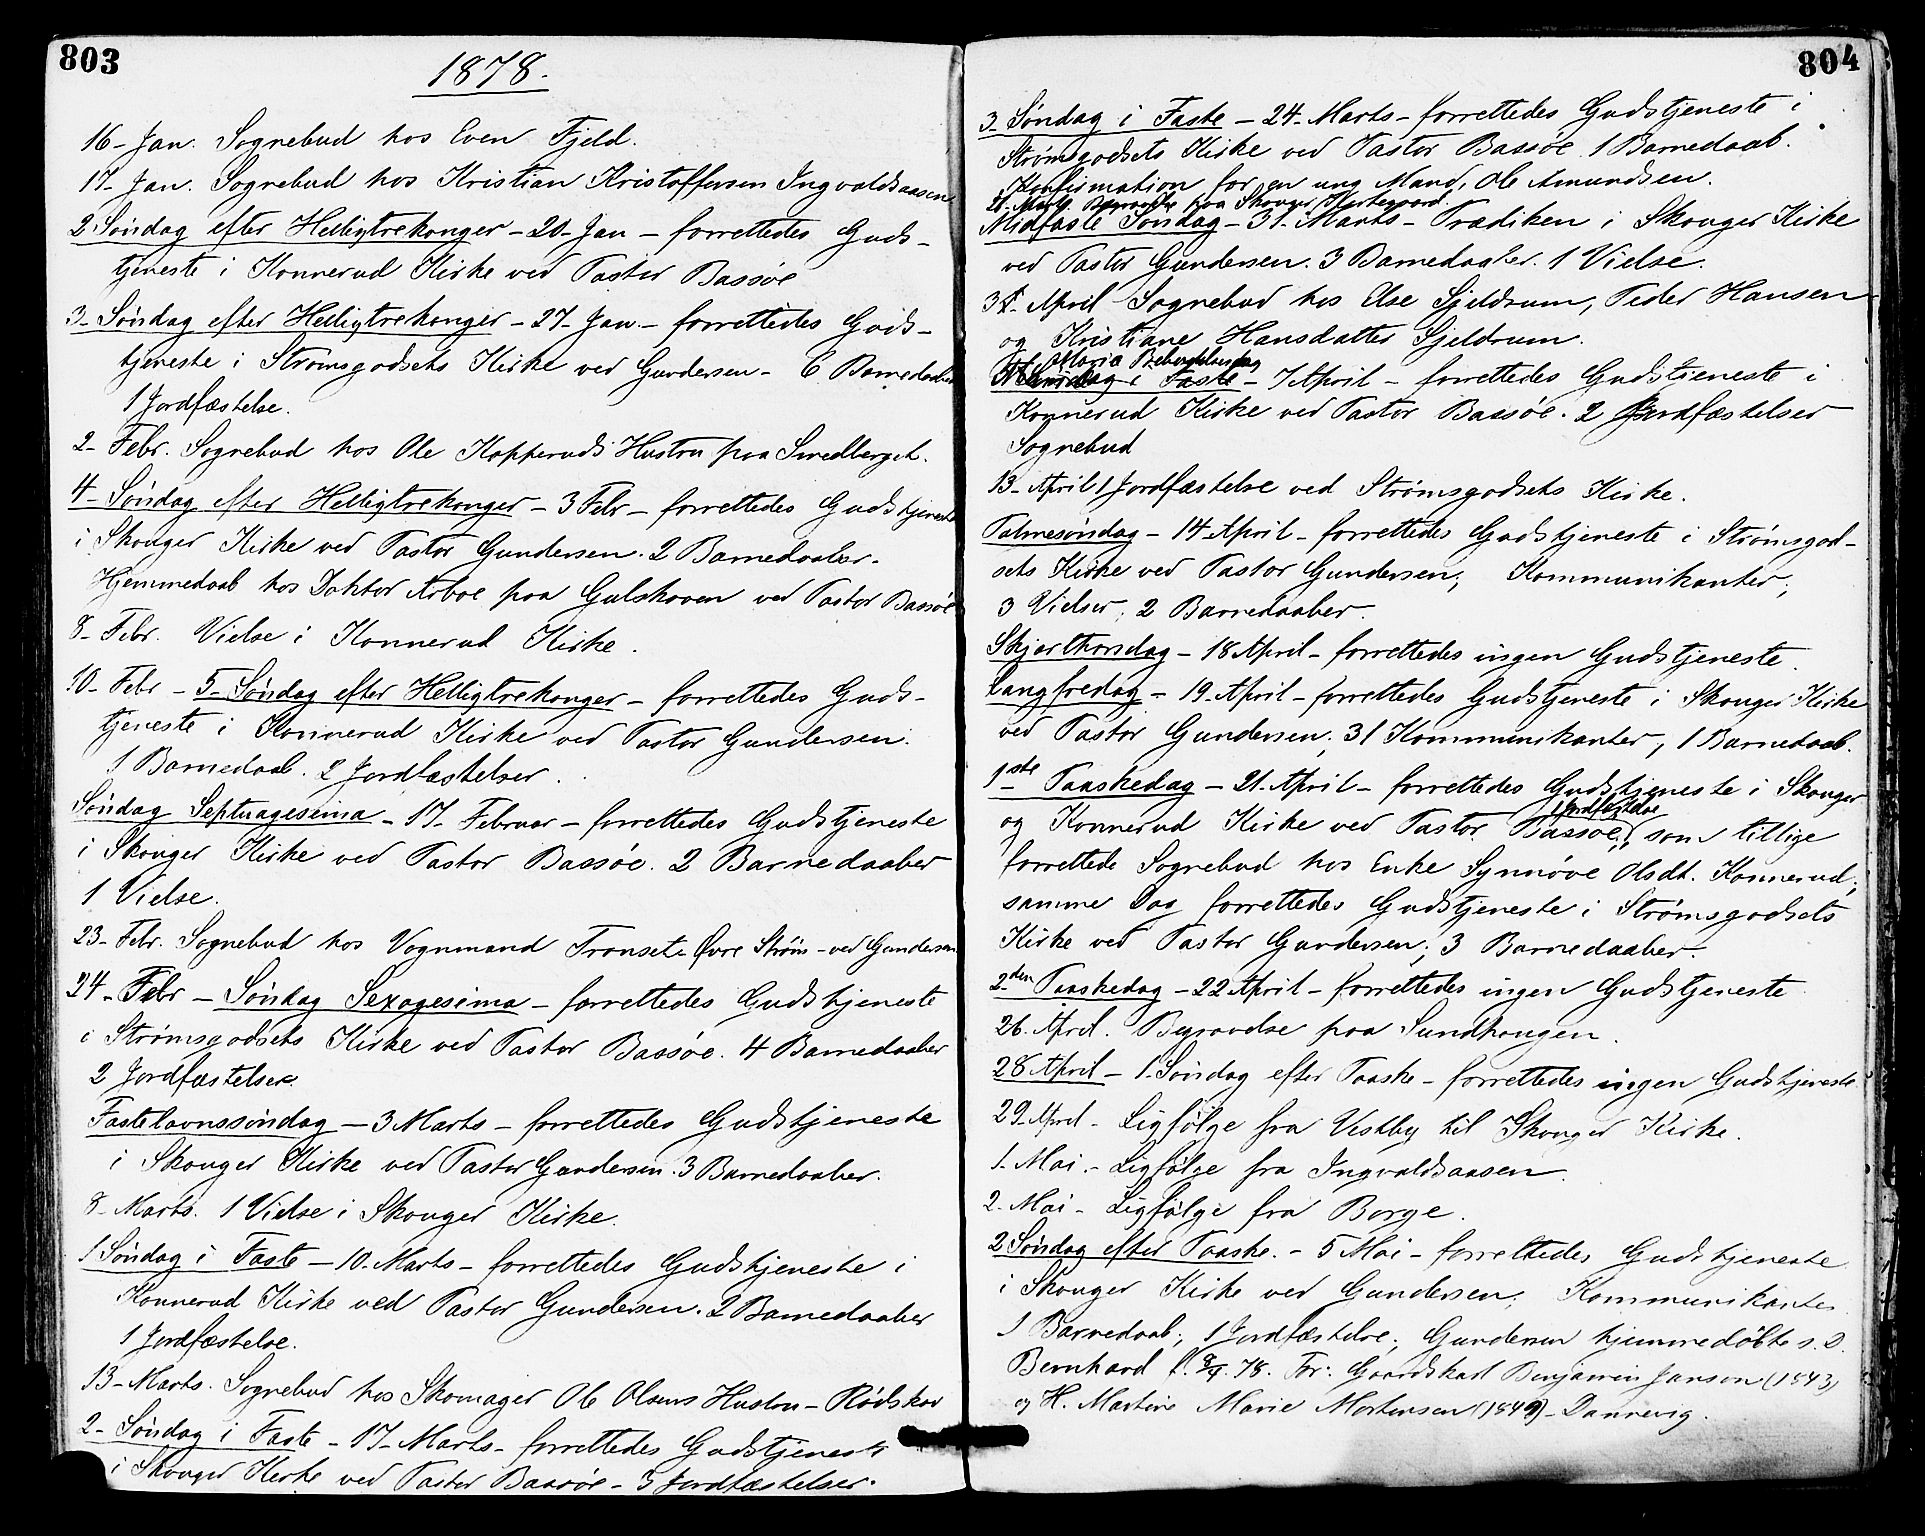 803
1878.
16- Jan. Sognebud hos Even Fjeld.
17- Jan. Sognebud hos Kristian Kristoffersen Ingvaldsaasen
2 Søndag efter Helligtrekonger - 20- Jan - forrettedes Guds-
tjeneste i Konnerud Kirke ved Pastor Bassøe
3- Søndag efter Helligtrekonger - 27- Jan. - forrettedes Guds-
tjeneste i Strømsgodsets Kirke ved Gundersen - 6 Barnedaaber
1 Jordfæstelse.
2- Febr. Sognebud hos Ole Kopperuds Hustru paa Smedberget.
4- Søndag efter Helligtrekonger - 3 Febr - forrettedes Gudstjeneste
i Skouger Kirke ved Pastor Gundersen. 2 Barnedaaber.
Hjemmedaab hos Doktor Arboe paa Gulskoven ved Pastor Bassøe
8- Febr. Vielse i Konnerud Kirke.
10- Febr - 5- Søndag efter Helligtrekonger - forrettedes Guds-
tjeneste i Konnerud Kirke ved Pastor Gundersen.
1 Barnedaab. 2 Jordfæstelser.
Søndag Septuagesima - 17- Februar - forrettedes Gudstjeneste
i Skouger Kirke ved Pastor Bassøe. 2 Barnedaaber
1 Vielse.
23- Febr. Sognebud hos Vognmand Tronset Øvre Strøm - ved Gundersen
24- Febr - Søndag Sexagesima - forrettedes Gudstjeneste
i Strømsgodsets Kirke ved Pastor Bassøe. 4 Barnedaaber
2 Jordfæstelser.
Fastelavnssøndag - 3 Marts - forrettedes Gudstjeneste
i Skouger Kirke ved Pastor Gundersen. 3 Barnedaaber.
8- Marts. 1 Vielse i Skouger Kirke.
1 Søndag i Faste - 10- Marts - forrettedes Gudstjeneste i
Konnerud Kirke ved Pastor Gundersen. 2 Barnedaaber
1 Jordfæstelse.
13- Marts. Sognebud hos Skomager Ole Olsens Hustru - Rødskov
2- Søndag i Faste - 17- Marts - forrettedes Gudstjeneste
i Skouger Kirke ved Pastor Bassøe - 3 Jordfæstelser.
804
3- Søndag i Faste - 24- Marts - forrettedes Gudstjeneste i
Strømsgodsets Kirke ved Pastor Bassøe. 1 Barnedaab.
Konfirmation for en ung Mand, Ole Amundsen.
Marts. paa Skouger Kirkegaard.
Midfaste Søndag - 31- Marts - Prædiken i Skouger Kirke
ved Pastor Gundersen. 3 Barnedaaber. 1 Vielse.
April Sognebud hos Else Gjeldrum, Peder Hansen
og Kristiane Hansdatter Gjeldrum.
Maria Bebudelsesdag
Søndag i Faste - 7 April - forrettedes Gudstjeneste i
Konnerud Kirke ved Pastor Bassøe. 2 Jordfæstelser
Sognebud
13- April 1 Jordfæstelse ved Strømsgodsets Kirke.
Palmesøndag - 14- April - forrettedes Gudstjeneste i Strømsgod-
sets Kirke ved Pastor Gundersen; Kommunikanter;
3 Vielser; 2 Barnedaaber.
Skjærthorsdag - 18 April - forrettedes ingen Gudstjeneste.
Langfredag - 19- April - forrettedes Gudstjeneste i Skouger Kirke
ved Pastor Gundersen; 31 Kommunikanter, 1 Barnedaab.
1ste Paaskedag - 21- April - forrettedes Gudstjeneste i Skouger
1 Jordfæstelse
og Konnerud Kirke ved Pastor Bassøe; som tillige
forrettede Sognebud hos Enke Synnøve Olsdt. Konnerud;
samme Dag forrettedes Gudstjeneste i Strømsgodsets
Kirke ved Pastor Gundersen; 3 Barnedaaber.
2den Paaskedag - 22 April - forrettedes ingen Gudstjeneste
26. April. Begravelse paa Sundhaugen.
28 April - 1- Søndag efter Paaske - forrettedes ingen Gudstjeneste.
29- April - Ligfølge fra Vestby til Skouger Kirke.
1- Mai. - Ligfølge fra Ingvaldsaasen.
2- Mai - Ligfølge fra Borge.
2 Søndag efter Paaske. - 5 Mai - forrettedes Gudstjeneste
i Skouger Kirke ved Gundersen; Kommunikanter
1 Barnedaab; 1 Jordfæstelse; Gundersen hjemmedøbte s. D.
Bernhard f. 78. For: Gaardskarl Benjamin Janson (1843)
og H. Martine Marie Mortensen (1849) - Dannevig.